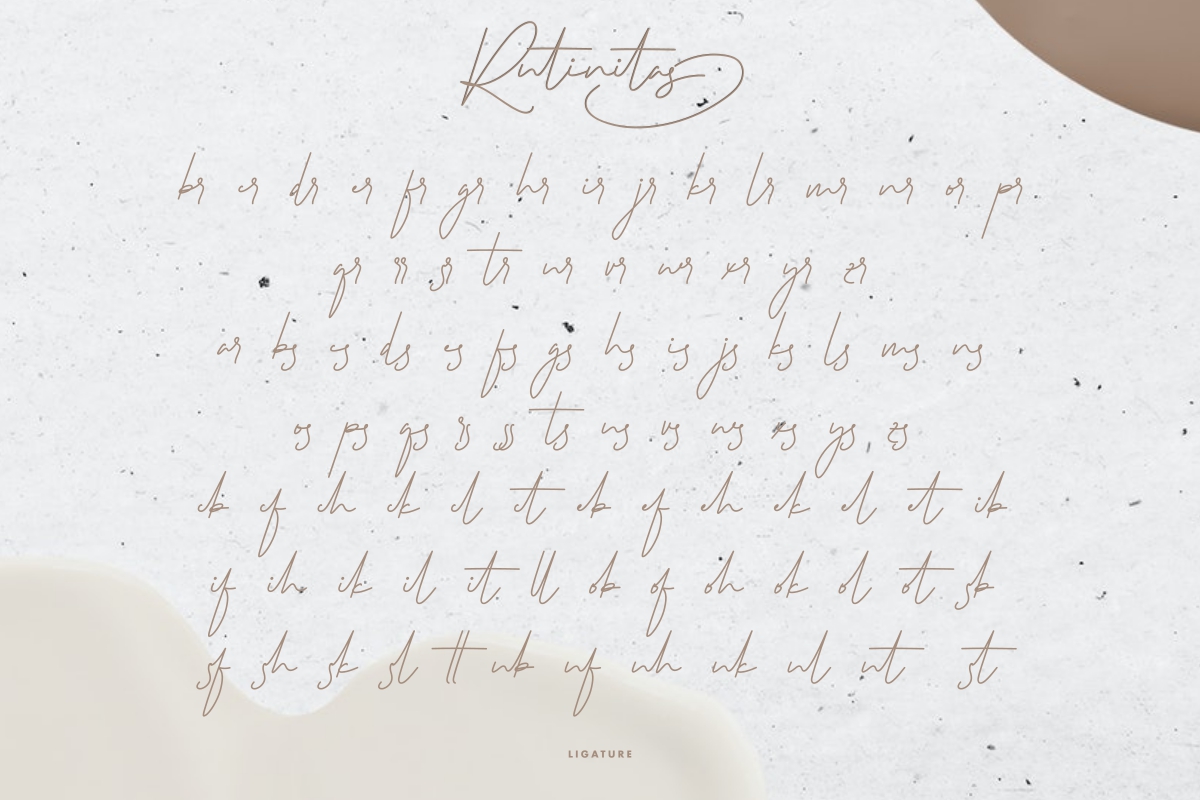 Rutinitas
br cr dr er fr gr hr ir jr kr lr mr nr or pr
qr rr sr tr ur vr wr xr yr zr
ar bs cs ds es fs gs hs is js ks ls ms ns
os ps qs rs ss ts us vs ws xs ys zs
cb cf ch ck cl ct eb ef eh ek el et ib
if ih ik il it ll ob of oh ok ol ot sb
sf sh sk sl tt ub uf uh uk ul ut st
LIGATURE